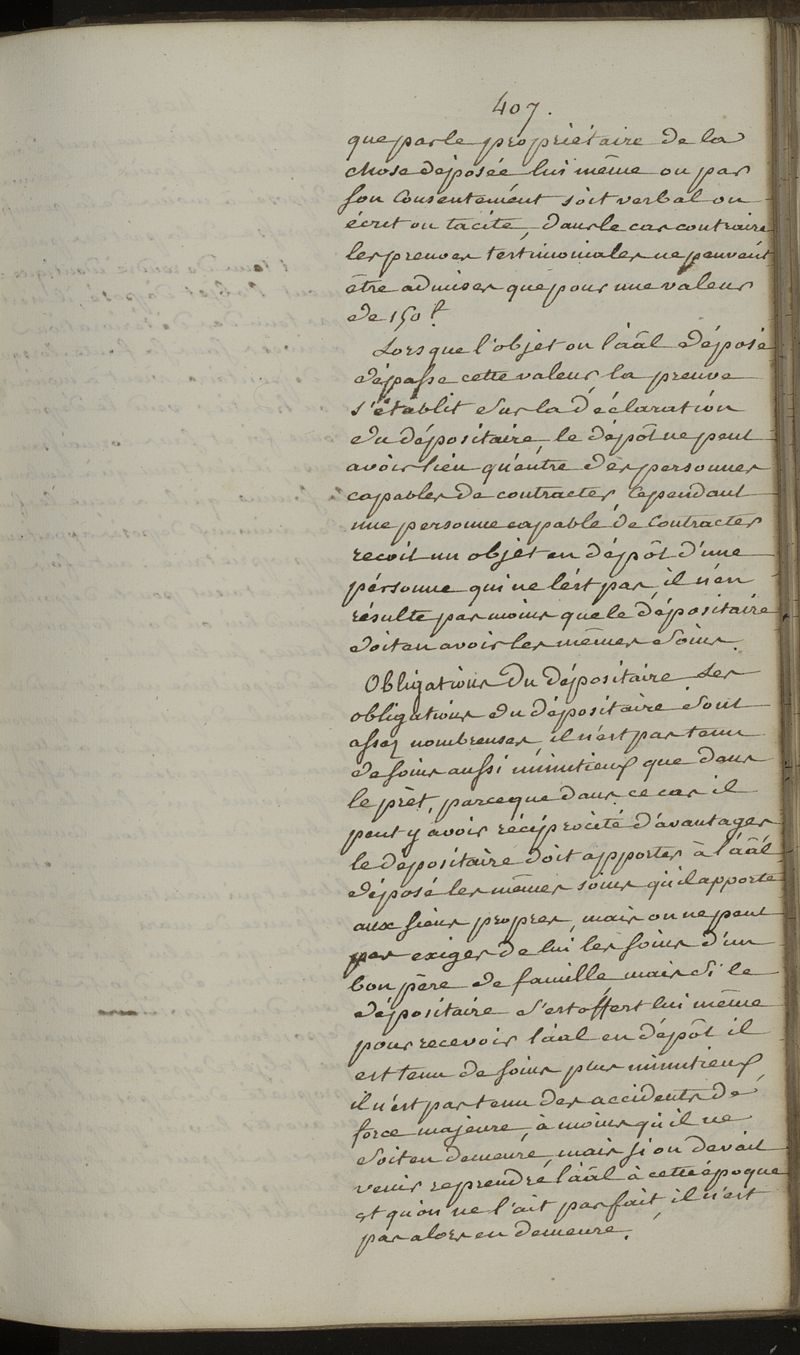 407.
que par le propriétaire de la
chose déposée lui même ou par
son consentement soit verbal ou
écrit ou tacite, dans le cas contraire
les preuves testimoniales ne peuvent
être admises que pour une valeur
de 150 f
Lorsque l'objet ou l'aâl déposé
dépasse cette valeur la preuve
s'établit sur la déclaration
du dépositaire, le dépôt ne peut
avoir lieu qu'entre des personnes
capables de contracter, cependant
une personne capable de contracter
reçoit un objet en dépôt d'une
pérsonne qui ne l'est pas, il n'en
résulte pas moins que le dépositaire
doit en avoir les mêmes soins.
Obligations du dépositaire Les
obligations du dépositaire sont
assez nombreuses, il n'est pas tenu
de soins aussi minutieux que dans
le prèt, parceque dans ce cas il
peut y avoir réciprocité d'avantages
le dépositaire doit apporter à l'aâl
déposé les mêmes soins qu'il apporte
aux siens propres, mais on ne peut
pas exiger de lui les soins d'un
bon père de famille mais si le
dépositaire s'est offert lui même
pour recevoir l'aal en dépôt il
est tenu de soins plus minutieux,
il n'est pas tenu des accidents de
force majeure, à moins qu'il ne
soit en demeure, mais si on devait
venir reprendre l'aâl à cette époque
et qu'on ne l'ait pas fait, il n'est
pas alors en demeure.